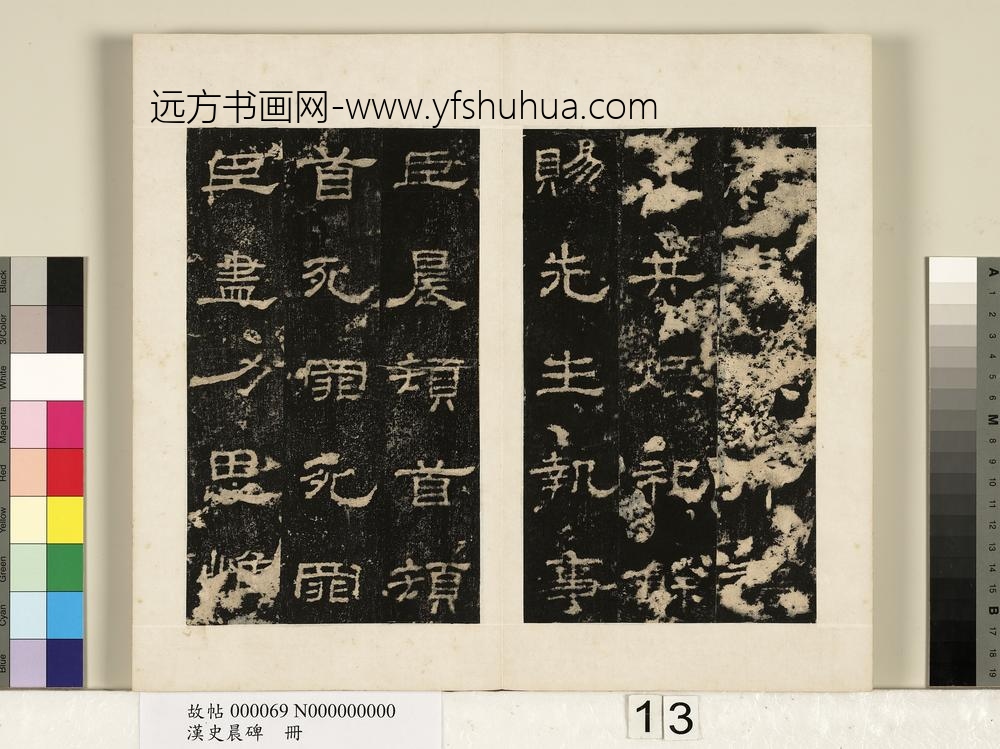 远方书画网-www.yfshuhua.com
共煙祀餘
賜先生執事
臣晨頓首頓
首死罪死罪
臣盡力思惟
故帖 000069 N000000000
漢史晨碑 冊
13
Black
3/Color
White
Magenta
Red
Yellow
Green
Cyan
Blue
A
1
2
3
4
5
6
M
8
9
10
11
12
13
14
15
B
17
18
19